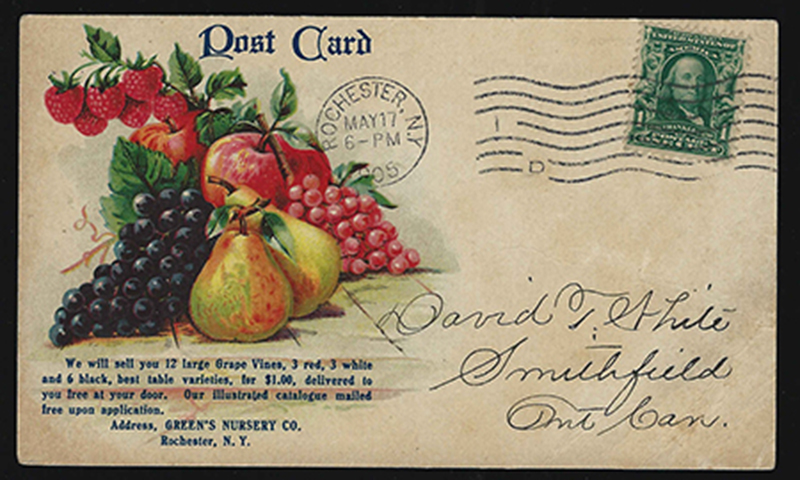 Post Card
ROCHESTER, N.Y.
MAY 17
6-PM
1905
1
D
UNITED STATES OF
AMERICA
1
1
FRANKLIN
We will sell you 12 large Grape Vines, 3 red, 3 white
and 6 black, best table varieties, for $1.00, delivered to
you free at your door. Our illustrated catalogue mailed
free upon application.
Address, GREEN'S NURSERY CO.
Rochester, N. Y.
David T. White
Smithfield
Ont Can.